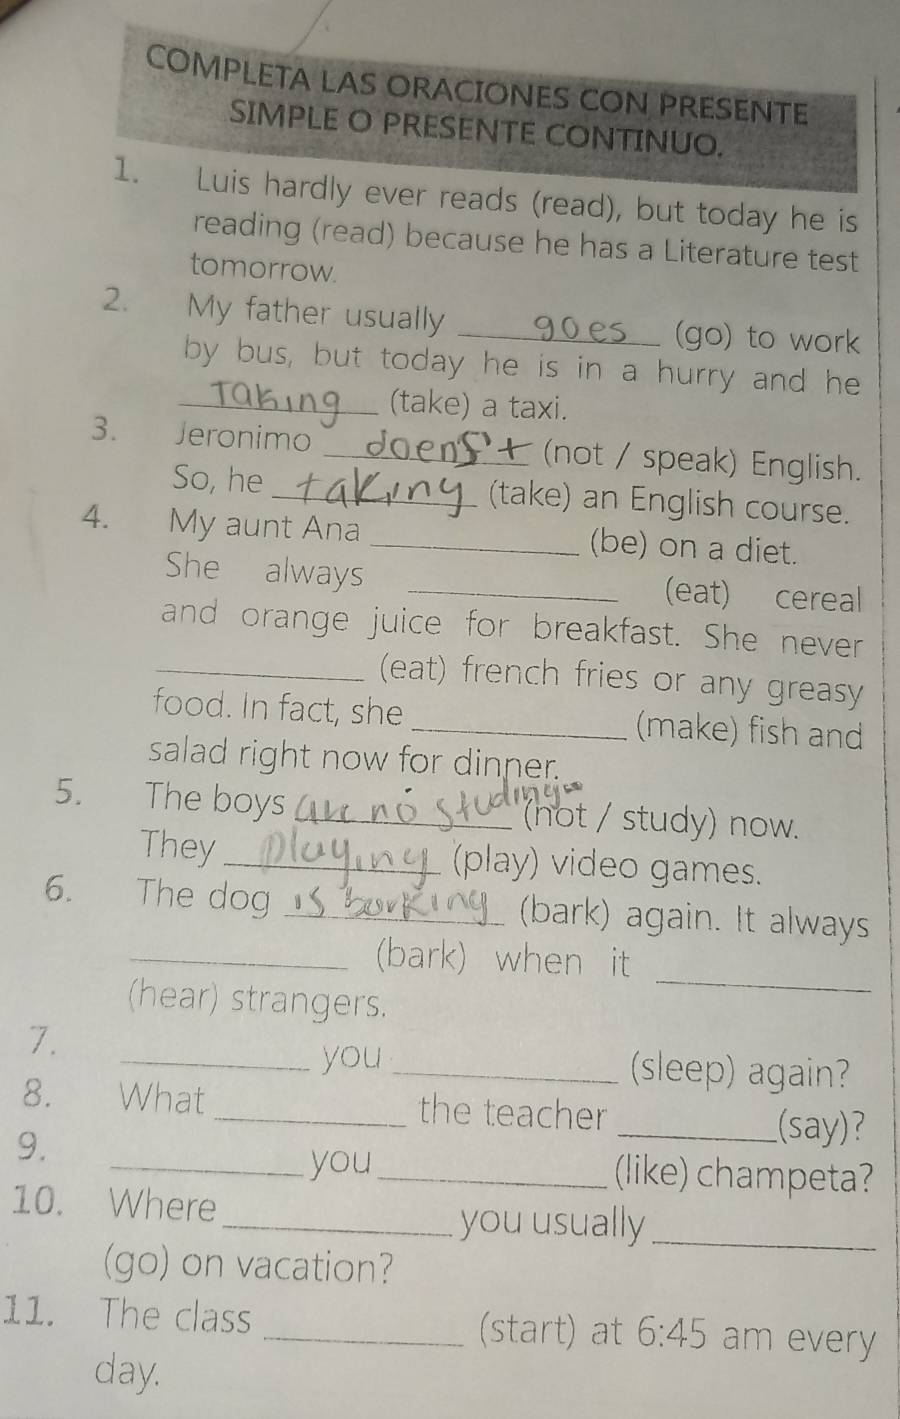 COMPLETA LAS ORACIONES CON PRESENTE
SIMPLE O PRESENTE CONTINUO.
1. Luis hardly ever reads (read), but today he is
reading (read) because he has a Literature test
tomorrow.
2. My father usually goes (go) to work
by bus, but today he is in a hurry and he
Taking (take) a taxi.
3. Jeronimo doens't (not / speak) English.
So, he taking (take) an English course.
4. My aunt Ana ____________ (be) on a diet.
She always ____________ (eat) cereal
and orange juice for breakfast. She never
____________ (eat) french fries or any greasy
food. In fact, she ____________ (make) fish and
salad right now for dinner.
5. The boys are no studing (not / study) now.
They playing (play) video games.
6. The dog is barking (bark) again. It always
____________ (bark) when it ____________
(hear) strangers.
7. ____________ you ____________ (sleep) again?
8. What ____________ the teacher __________ (say)?
9. ____________ you ____________ (like) champeta?
10. Where ____________ you usually ____________
(go) on vacation?
11. The class ____________ (start) at 6:45 am every
day.